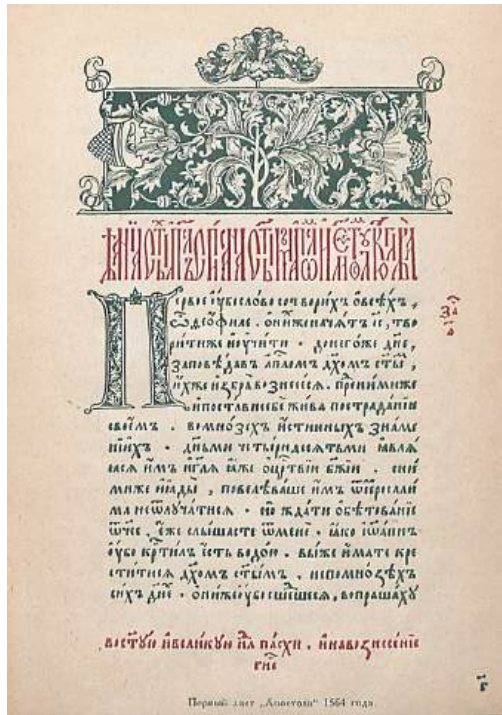 Первое ᲂубо слово сотворихъ ѡ всѣхъ ,
ѽ ѳеофиле . ѡнихже начѧтъ і҃с , тво
ритиже иᲂучити · донегоже дн҃е ,
заповѣдавъ ап҃ломъ дх҃омъ ст҃ымъ ,
ихже избра вознесесѧ . преⷣнимиже
ипостави себе жива пострадании
своемъ . вомнозѣхъ истинныхъ знаме
нїихъ · дн҃ьми четыридесѧтьми ꙗвлѧ
ꙗсѧ имъ игл҃ѧ ꙗже ѡцр҃твїи бж҃їи . сни
миже иꙗды , повелѣваше имъ ѿіерⷭ҇али
ма неѿлꙋчатисѧ · но ждати ѡбѣтованїе
ѿч҃ее , еже слышасте ѿмене · ꙗко іѡаннъ
ᲂубо крⷭ҇тилъ есть водою . выже имате кре
ститисѧ дх҃омъ ст҃ымъ . непомнозѣхъ
сихъ дн҃е · ѡниже ᲂубо сшеⷣшесѧ , вопрашахꙋ
Первый лист „Апостола“ 1564 года